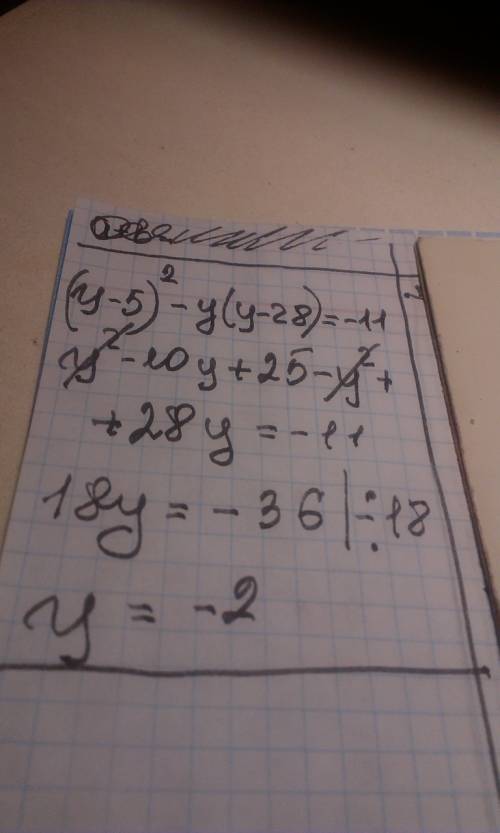 (y-5)² - y(y-28) = -11
y² - 10y + 25 - y² +
+ 28y = -11
18y = -36 | ÷ 18
y = -2